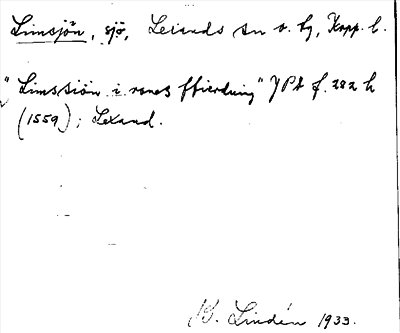 Limsjön, sjö, Leksands sn o. tg, Kopp. l.
"Limssiön i rones ffierdning" JPt f. 282 h
(1559); Lexand.
B. Lindén 1933.